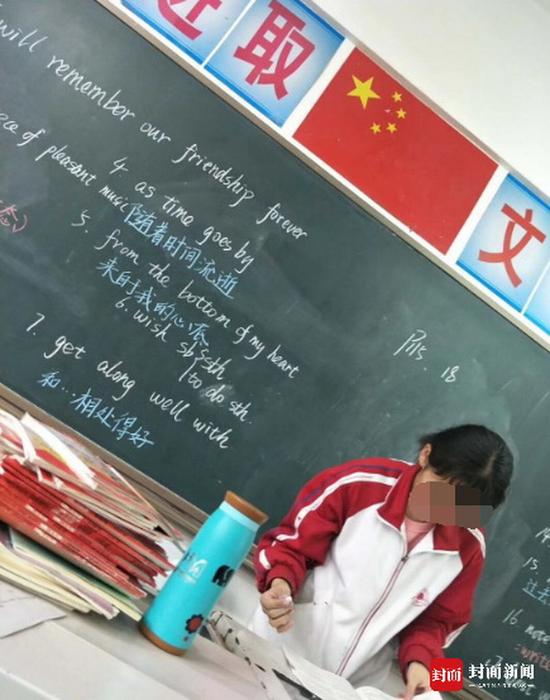 进取
文
will remember our friendship forever
piece of pleasant music
4. as time goes by
随着时间流逝
5. from the bottom of my heart
来自于我的心底
6. wish sb sth
to do sth.
7. get along well with
和…相处得好
P115. 18
14
15.
过去
16
封面 封面新闻